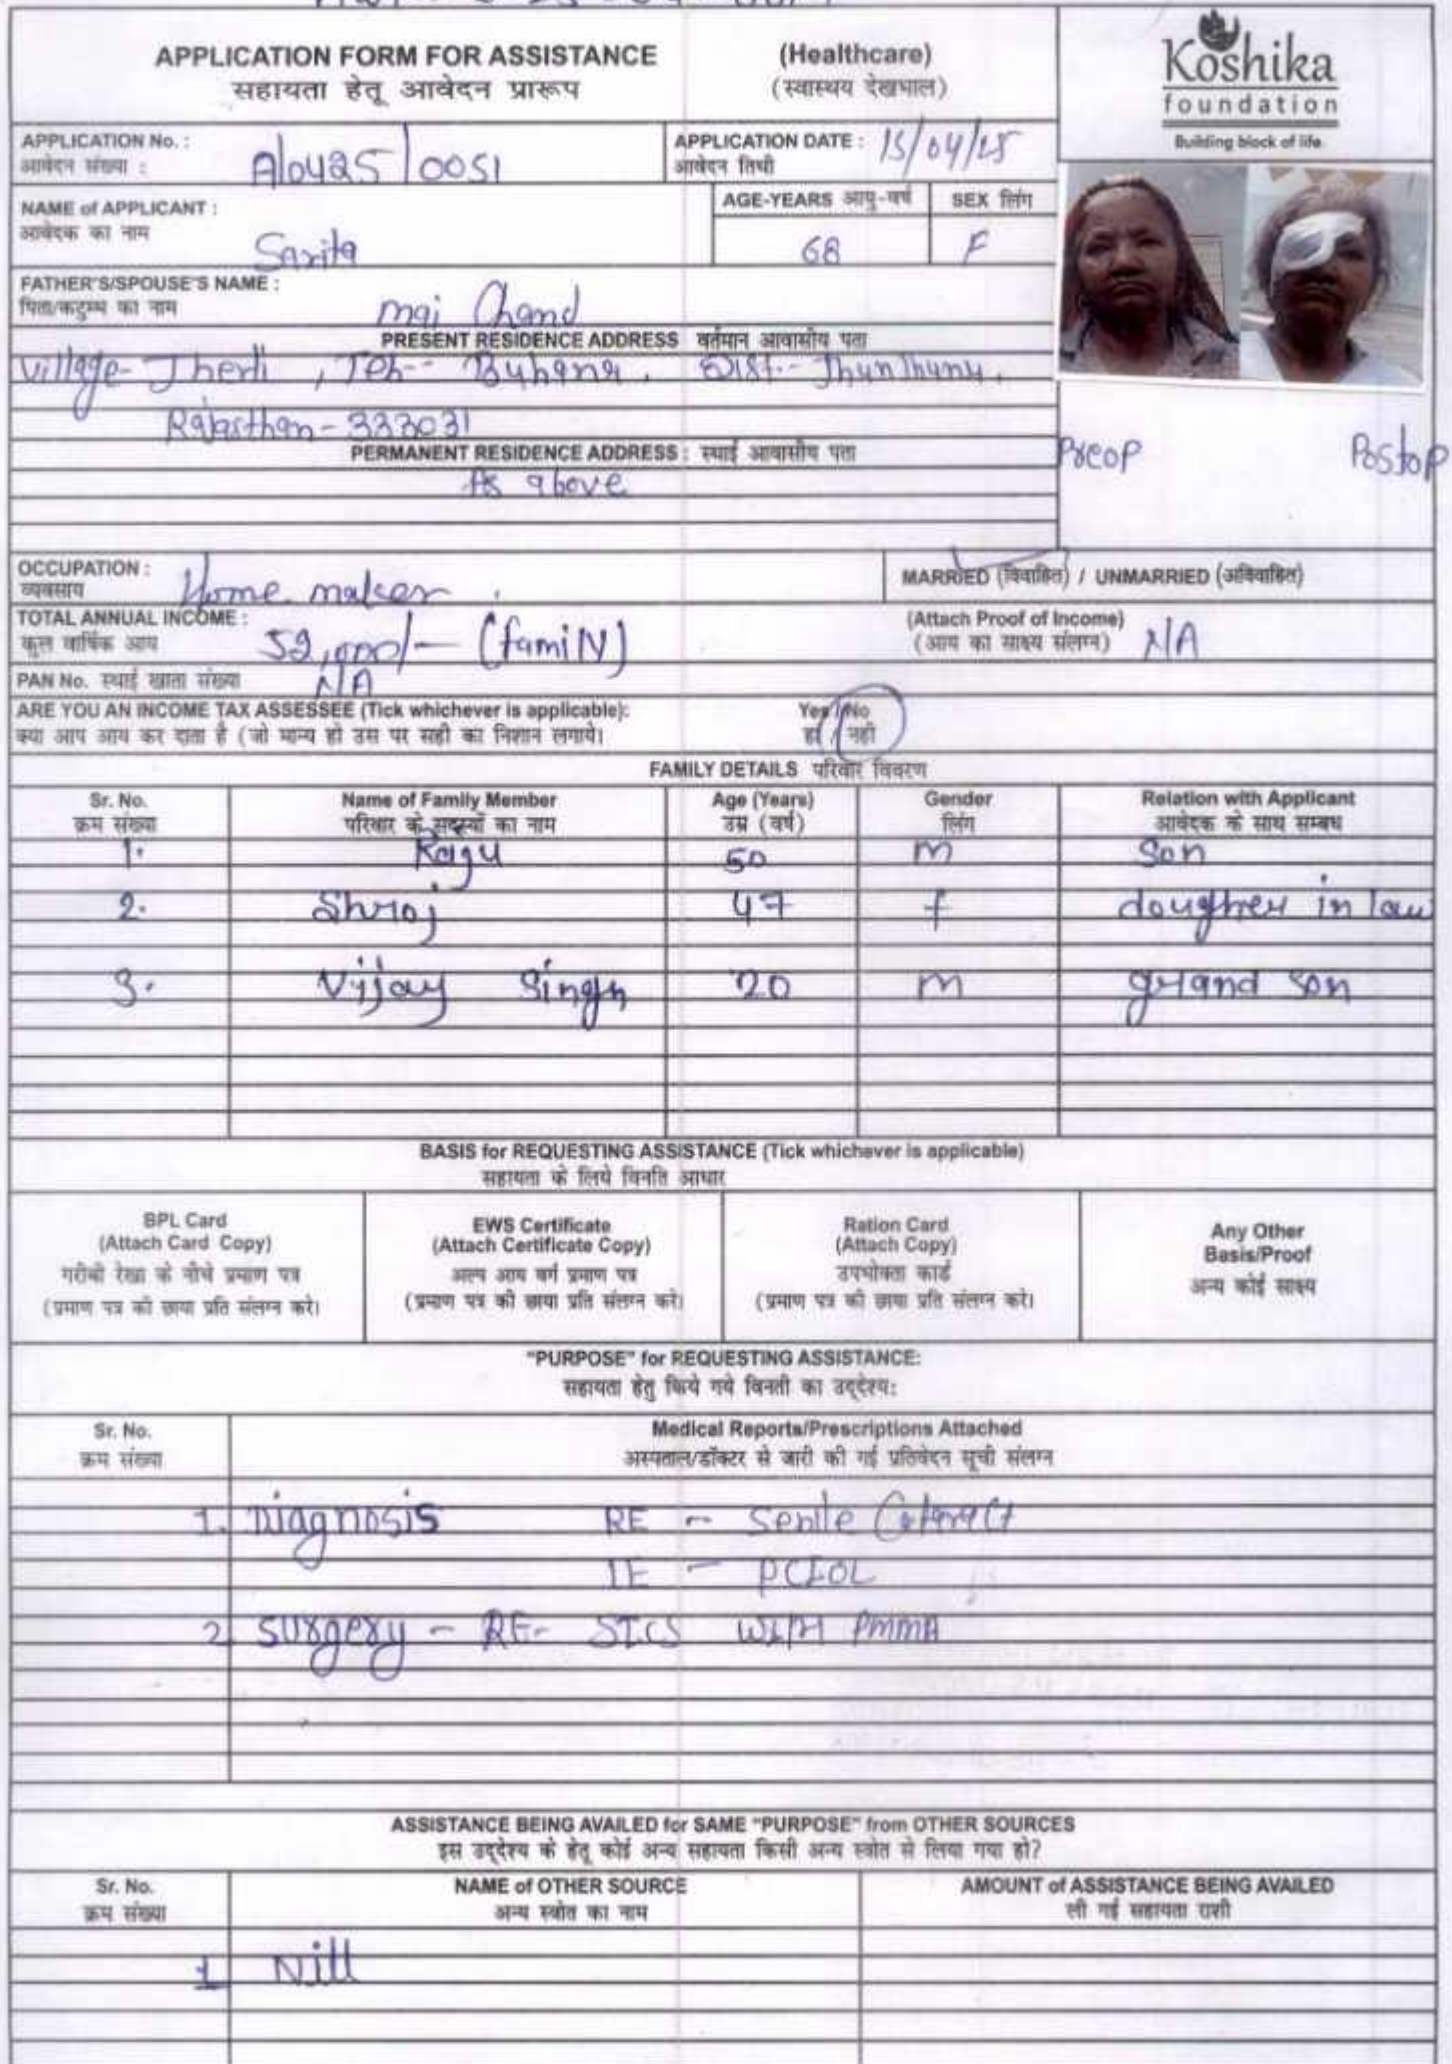 APPLICATION FORM FOR ASSISTANCE (Healthcare)
सहायता हेतू आवेदन प्रारूप (स्वास्थय देखभाल)
Koshika
foundation
Building block of life
APPLICATION No. :
आवेदन संख्या :
A10425/0051
APPLICATION DATE : 15/04/25
आवेदन तिथी
NAME of APPLICANT :
आवेदक का नाम
Sarita
AGE-YEARS आयु-वर्ष
68
SEX लिंग
F
FATHER'S/SPOUSE'S NAME :
पिता/कटुम्ब का नाम
mai Chand
PRESENT RESIDENCE ADDRESS वर्तमान आवासीय पता
Village- Jherli , Teh-- Buhana, Dist.- Jhunjhunu,
Rajasthan - 333031
PERMANENT RESIDENCE ADDRESS : स्थाई आवासीय पता
As above
Preop Postop
OCCUPATION :
व्यवसाय
Home maker
MARRIED (विवाहित) / UNMARRIED (अविवाहित)
TOTAL ANNUAL INCOME :
कुल वार्षिक आय
52,000/- (family)
(Attach Proof of Income)
(आय का साक्ष्य संलग्न) NA
PAN No. स्थाई खाता संख्या NA
ARE YOU AN INCOME TAX ASSESSEE (Tick whichever is applicable): Yes / No
क्या आप आय कर दाता है (जो मान्य हो उस पर सही का निशान लगाये। हां / नही
FAMILY DETAILS परिवार विवरण
Sr. No. Name of Family Member Age (Years) Gender Relation with Applicant
क्रम संख्या परिवार के सदस्यों का नाम उम्र (वर्ष) लिंग आवेदक के साथ सम्बध
1. Raju 50 m Son
2. Shroj 47 f doughter in law
3. Vijay Singh 20 m grand son
BASIS for REQUESTING ASSISTANCE (Tick whichever is applicable)
सहायता के लिये विनति आधार
BPL Card
(Attach Card Copy)
गरीबी रेखा के नीचे प्रमाण पत्र
(प्रमाण पत्र की छाया प्रति संलग्न करे।
EWS Certificate
(Attach Certificate Copy)
अल्प आय वर्ग प्रमाण पत्र
(प्रमाण पत्र की छाया प्रति संलग्न करे।
Ration Card
(Attach Copy)
उपभोक्ता कार्ड
(प्रमाण पत्र की छाया प्रति संलग्न करे।
Any Other
Basis/Proof
अन्य कोई साक्ष्य
"PURPOSE" for REQUESTING ASSISTANCE:
सहायता हेतु किये गये विनती का उद्देश्य:
Sr. No. Medical Reports/Prescriptions Attached
क्रम संख्या अस्पताल/डॉक्टर से जारी की गई प्रतिवेदन सूची संलग्न
1. Diagnosis RE - Senile Cataract
LE - PCIOL
2 Surgery - RE- SICS with PMMA
ASSISTANCE BEING AVAILED for SAME "PURPOSE" from OTHER SOURCES
इस उद्देश्य के हेतू कोई अन्य सहायता किसी अन्य स्त्रोत से लिया गया हो?
Sr. No. NAME of OTHER SOURCE AMOUNT of ASSISTANCE BEING AVAILED
क्रम संख्या अन्य स्त्रोत का नाम ली गई सहायता राशी
1 Nill